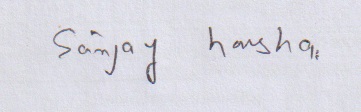 Sanjay harsha.